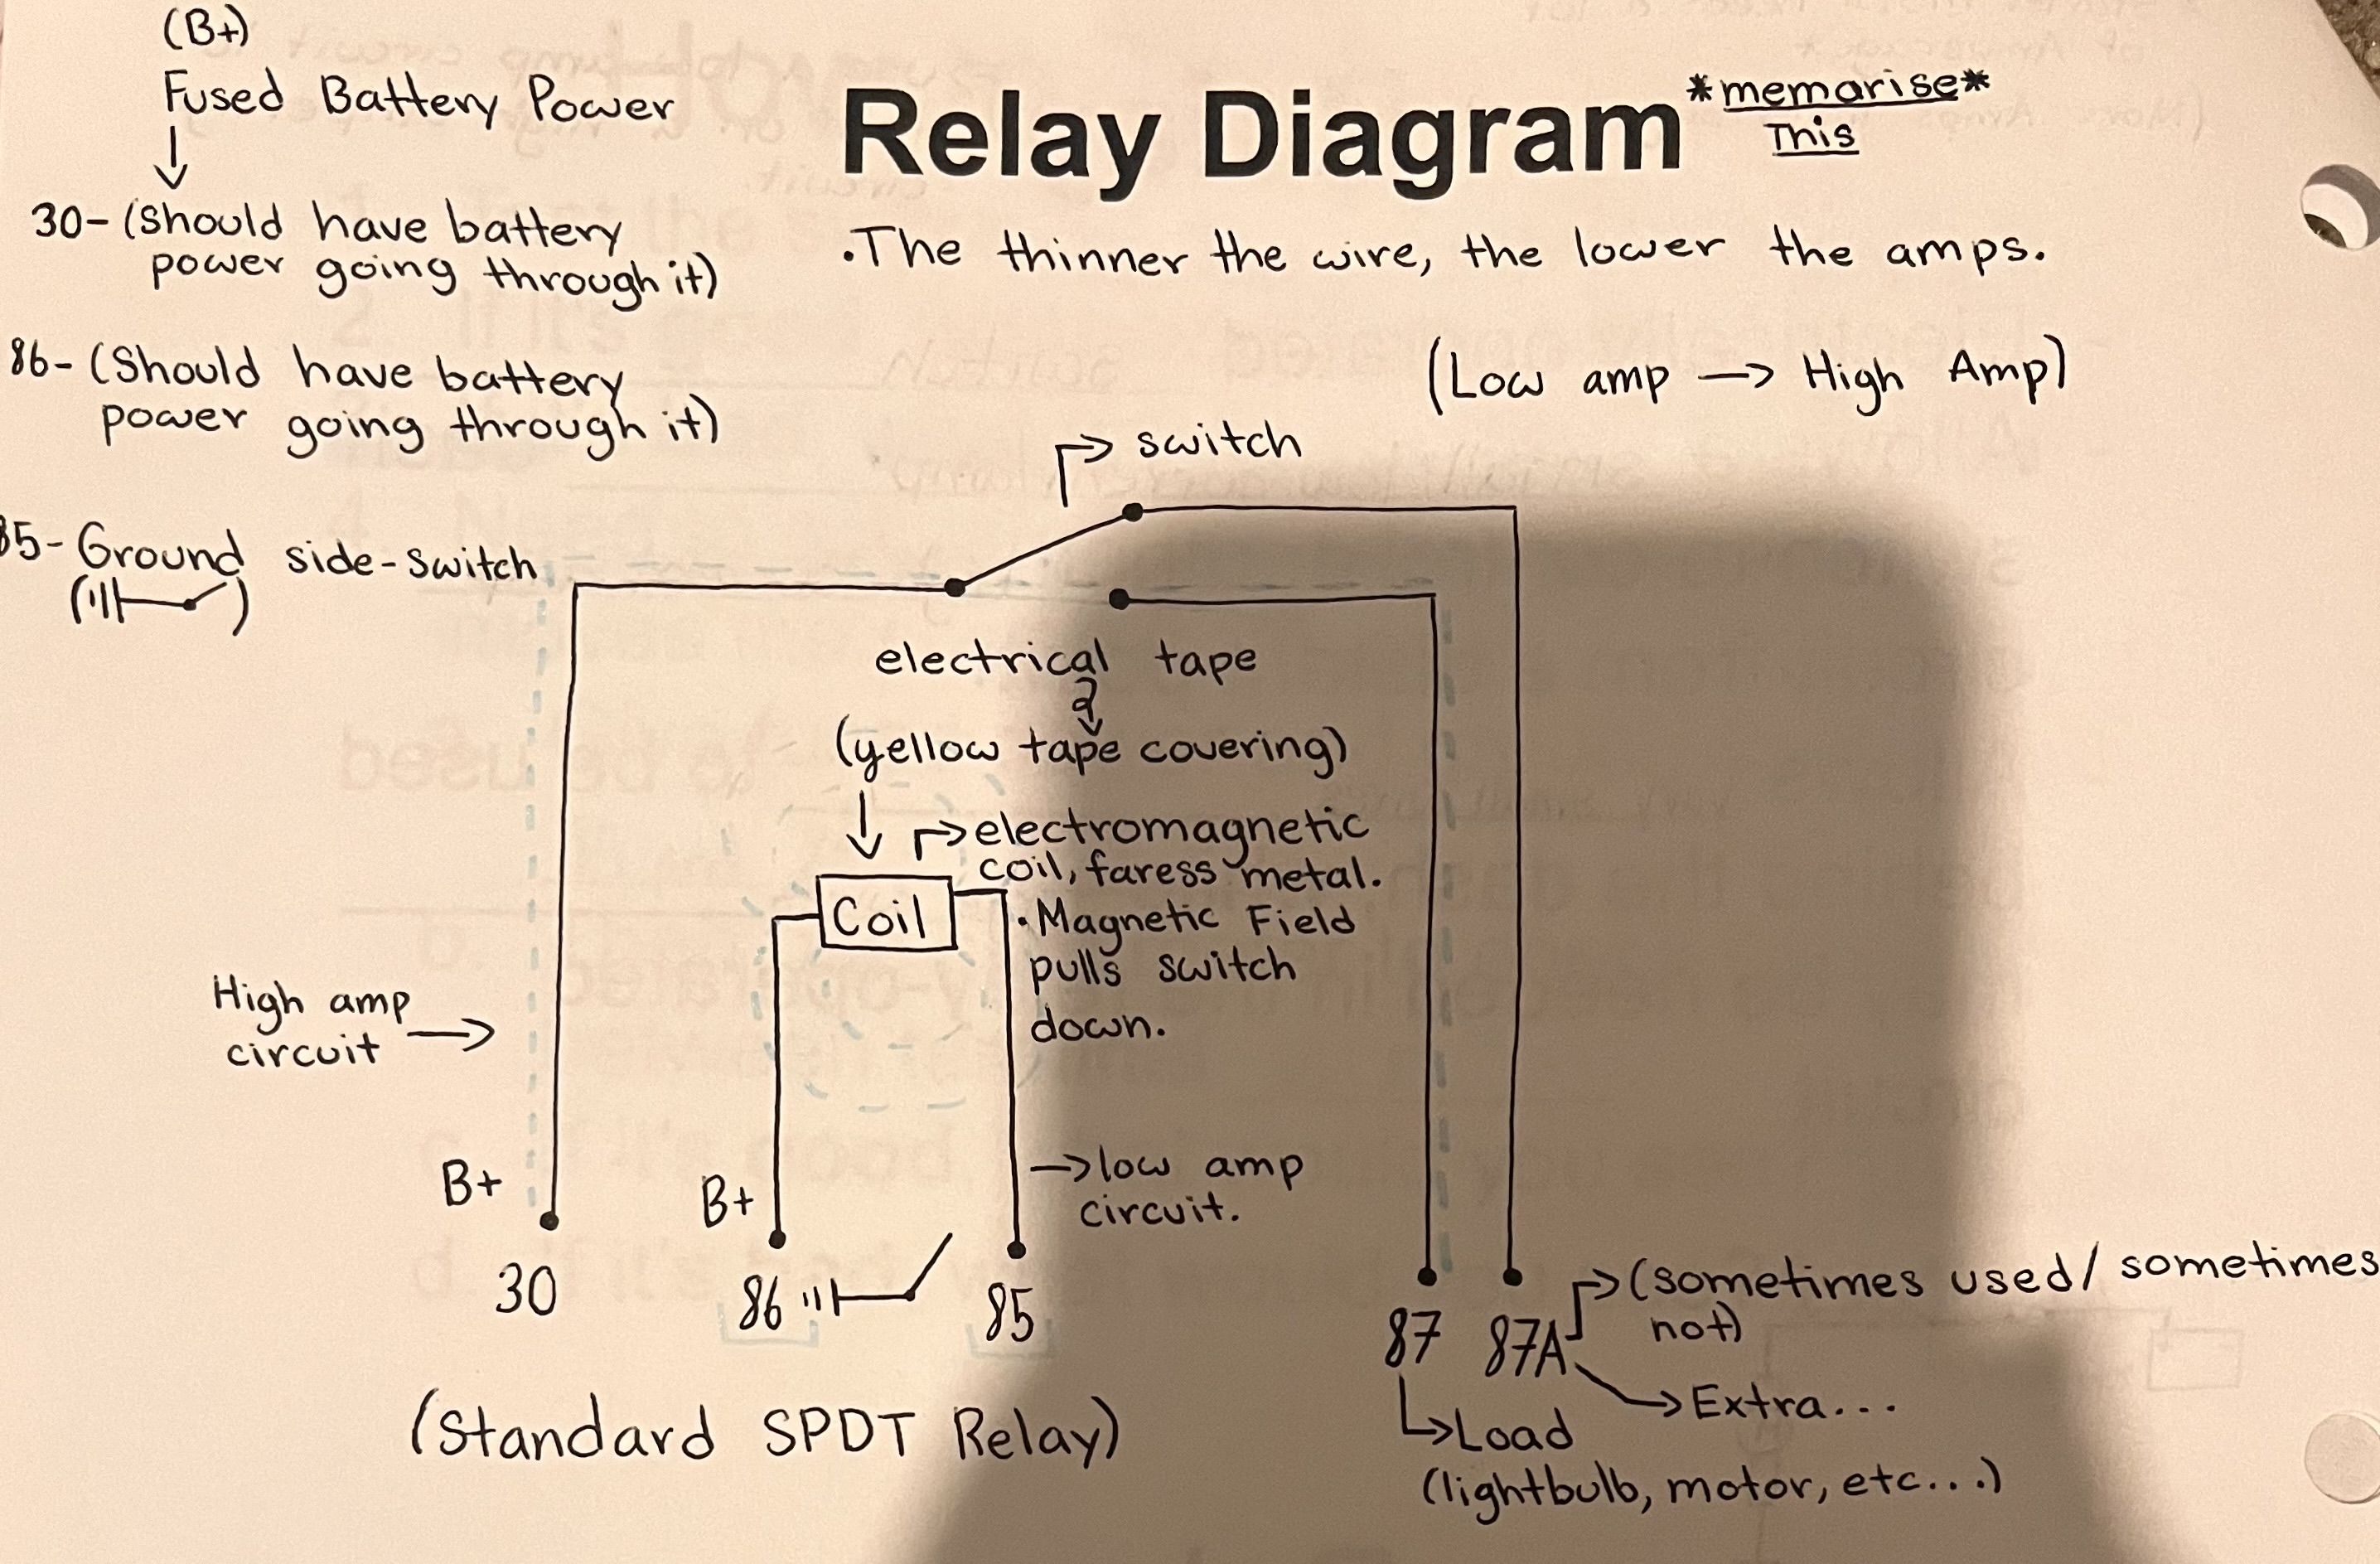 (B+)
Fused Battery Power
Relay Diagram
*memarise*
This
30-(should have battery
power going through it)
.The thinner the wire, the lower the amps.
86-(Should have battery
power going through it)
(Low amp → High Amp)
switch
85-Ground side-switch
electrical tape
(yellow tape covering)
electromagnetic
coil, faress metal.
Coil
.Magnetic Field
pulls switch
down.
High amp
circuit
B+
B+
→low amp
circuit.
30
86
85
87
87A
(sometimes used/ sometimes
not)
Extra...
Load
(lightbulb, motor, etc...)
(Standard SPDT Relay)